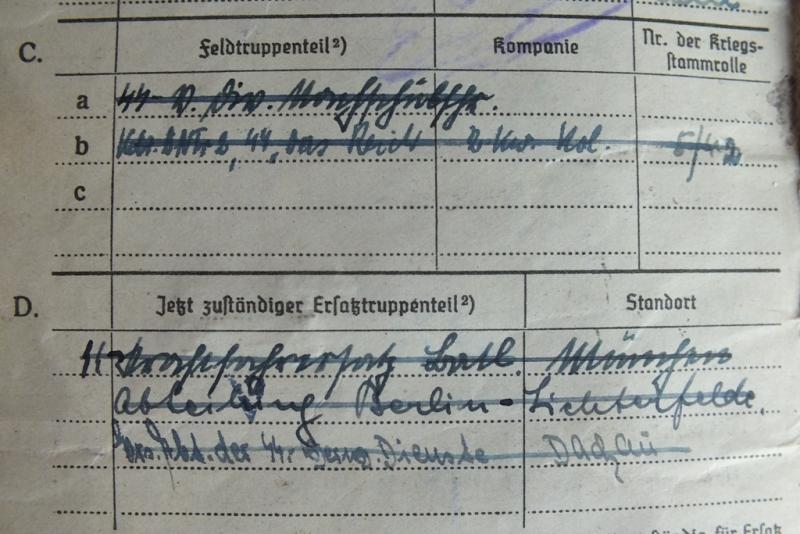 C. Feldtruppenteil²) Kompanie Nr. der Kriegs-
stammrolle
a ϟϟ-V. Div. Nachschubfhr.
b ϟϟ „das Reich 2. Kw. Kol. 5/42
c
D. Jetzt zuständiger Ersatztruppenteil²) Standort
ϟϟ Kraftfahrersatz Batl. München
Abteilung Berlin-Lichterfelde.
Ers. Abt. der ϟϟ Verw. Dienste Dachau
für Ersatz